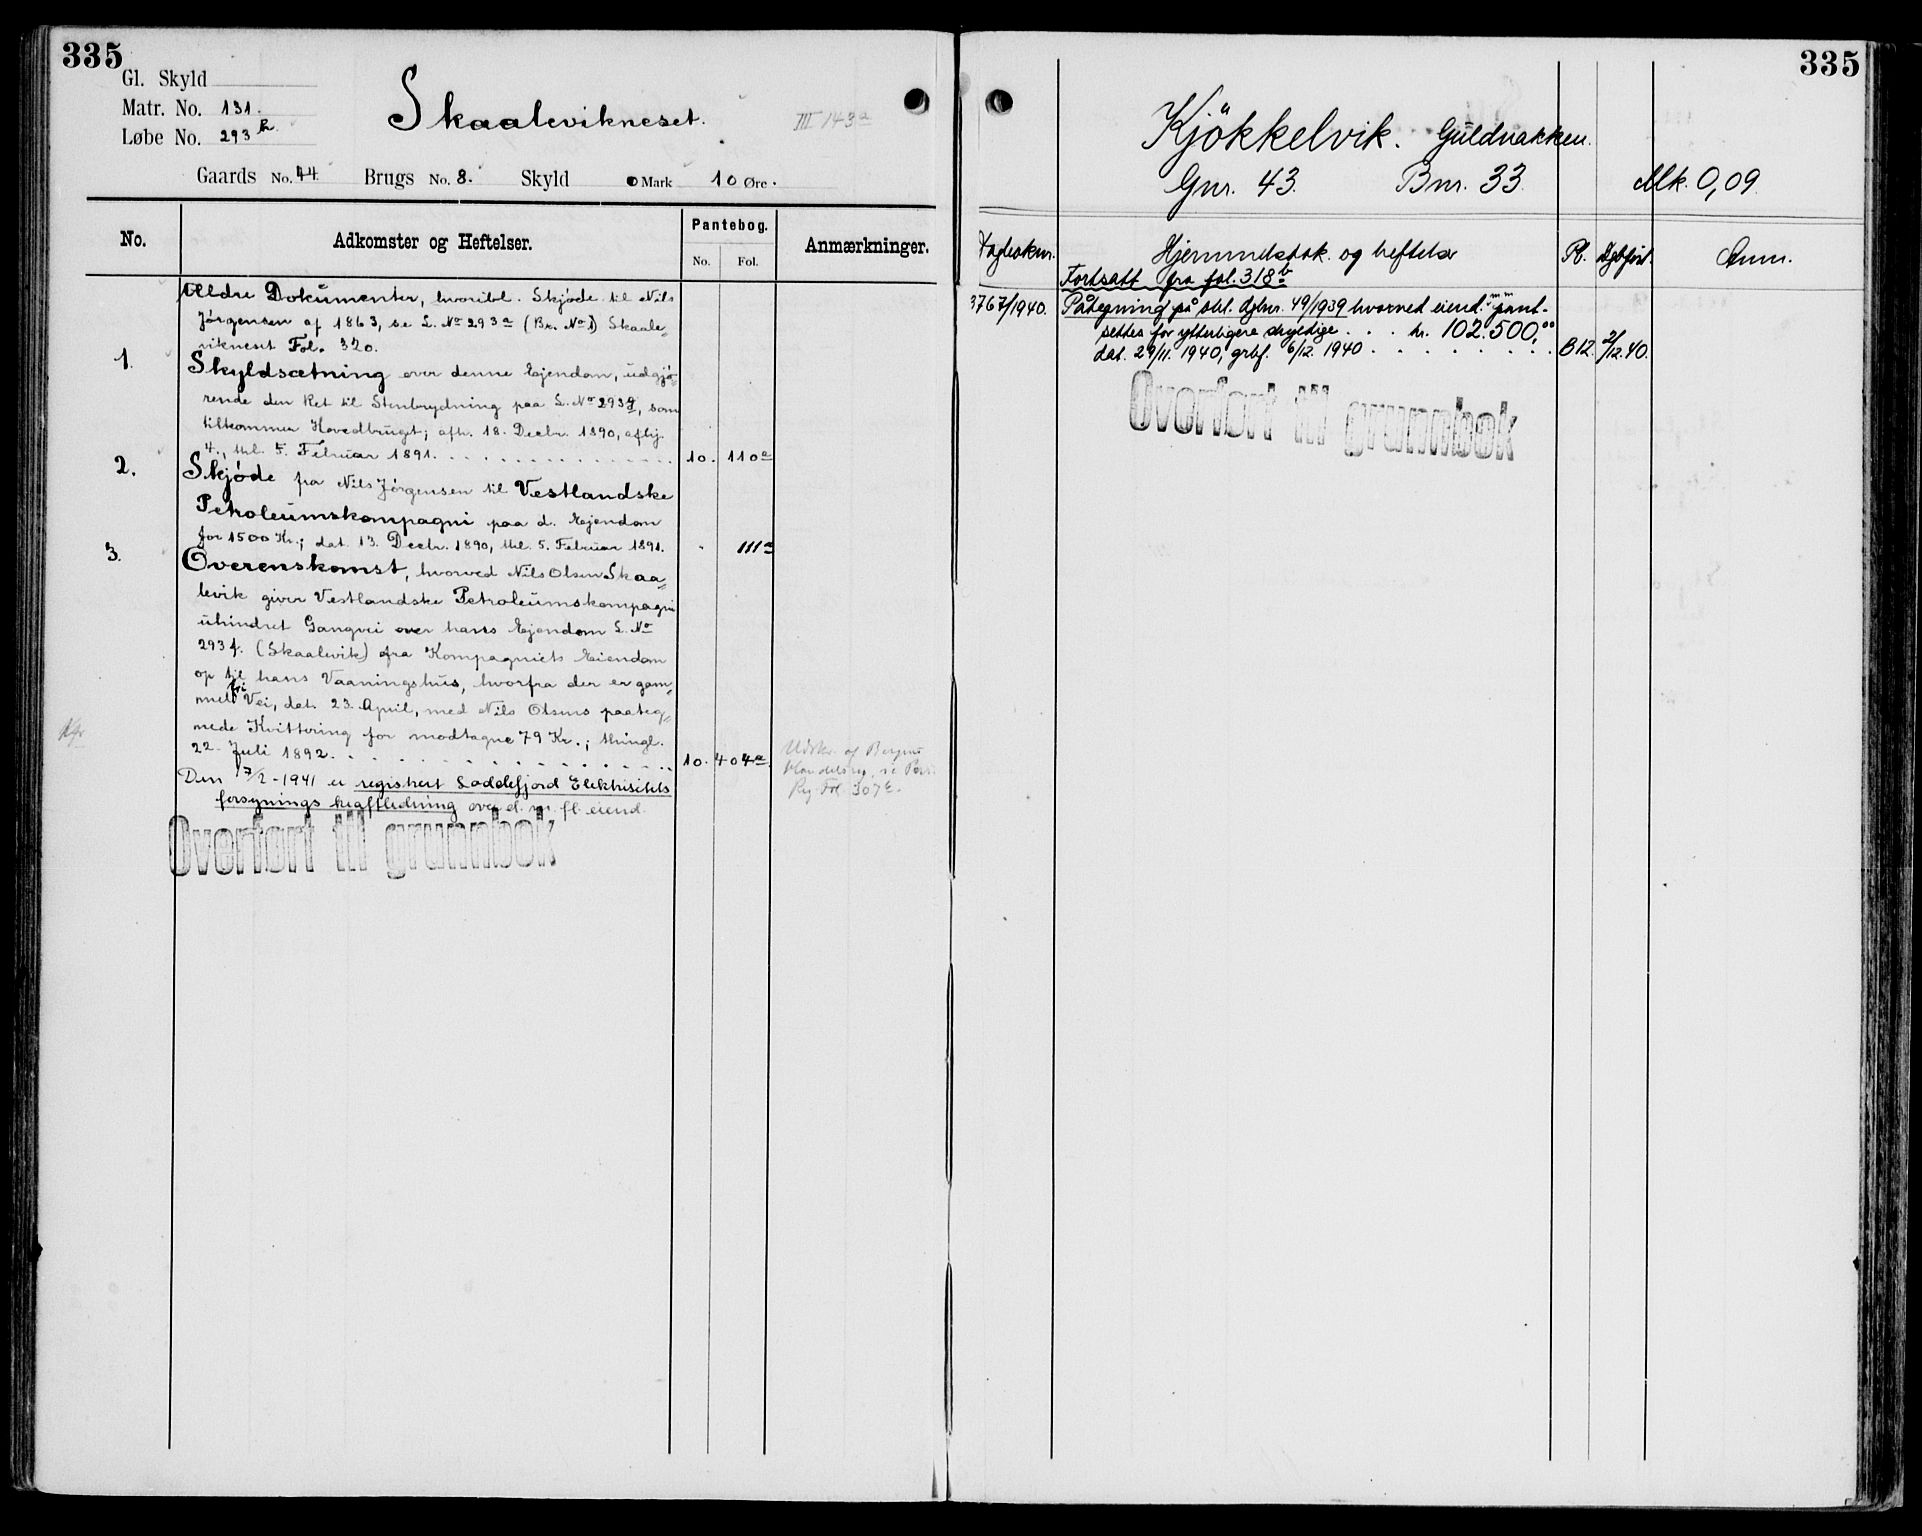 335
Gl. Skyld
Matr. No. 131.
Løbe No. 293 h.
Skaalevikneset.
III 143a
Gaards No. 44. Brugs No. 8. Skyld 0 Mark 10 Øre.
No.
Adkomster og Heftelser.
Pantebog.
No. Fol.
Anmærkninger.
Ældre Dokumenter, hvoribl. Skjøde til Nils
Jørgensen af 1863, se L. No 293a (Br. No 1) Skaale-
vikneset Fol. 320.
1. Skyldsætning over denne Ejendom, udgjø-
rende den Ret til Stenbrydning paa L. No 293g, som
tilkommer Hovedbruget; afh. 18. Decbr. 1890, afhj.
4., thl. 5. Februar 1891. 10. 110a
2. Skjøde fra Nils Jørgensen til Vestlandske
Petroleumskompagni paa d. Ejendom
for 1500 Kr.; dat. 13. Decbr. 1890, thl. 5. Februar 1891. " 111a
3. Overenskomst, hvorved Nils Olsen Skaa-
levik giver Vestlandske Petroleumskompagni
uhindret Gangvei over hans Ejendom L. No
293f. (Skaalevik) fra Kompagniets Eiendom
op til hans Vaaningshus, hvorfra der er gam-
mel fri Vei, dat. 23. April, med Nils Olsens paateg-
nede Kvittering for modtagne 79 Kr.; thingl.
22. Juli 1892. 10. 404a
Udskr. af Bergens
Handelsreg. se Pers.
Reg. Fol. 307
Den 17/2-1941 er registrert Loddefjord Elektrisitets
forsynings kraftledning over d. m. fl. eiend.
Overført til grunnbok
335
Kjökkelvik. Guldnakken.
Gnr. 43. Bnr. 33. Mk. 0,09.
Dagboknr.
Hjemmelsdok. og heftelser
Pb. Dgbført. Anm.
Fortsatt fra fol. 318b
3767/1940. Påtegning på obl. dgbnr. 49/1939 hvorved eiend. m. m. pant-
settes for ytterligere skyldige . . . kr. 102.500,00
dat. 29/11. 1940, grbf. 6/12. 1940 . . . B12. 2/12.40.
Overført til grunnbok